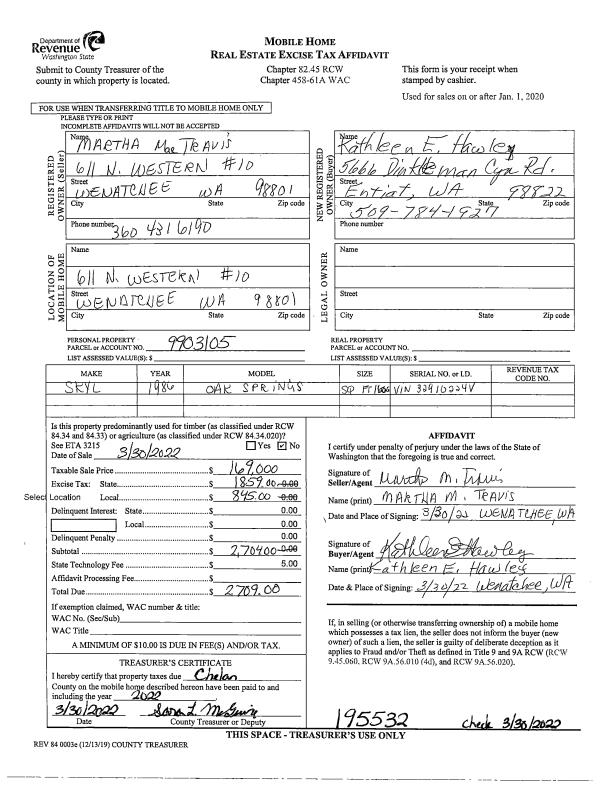 Department of
Revenue
Washington State
MOBILE HOME
REAL ESTATE EXCISE TAX AFFIDAVIT
Submit to County Treasurer of the
county in which property is located.
Chapter 82.45 RCW
Chapter 458-61A WAC
This form is your receipt when
stamped by cashier.
Used for sales on or after Jan. 1, 2020
FOR USE WHEN TRANSFERRING TITLE TO MOBILE HOME ONLY
PLEASE TYPE OR PRINT
INCOMPLETE AFFIDAVITS WILL NOT BE ACCEPTED
REGISTERED OWNER (Seller)
Name
MARTHA Mae TRAVIS
611 N. WESTERN #10
Street
WENATCHEE WA 98801
City State Zip code
Phone number 360 431 6190
NEW REGISTERED OWNER (Buyer)
Name
Kathleen E. Hawley
5666 Dinkleman Cyn Rd.
Street
Entiat, WA 98822
City State Zip code
509-784-1927
Phone number
LOCATION OF MOBILE HOME
Name
611 N. WESTERN #10
Street
WENATCHEE WA 98801
City State Zip code
LEGAL OWNER
Name
Street
City State Zip code
PERSONAL PROPERTY
PARCEL or ACCOUNT NO. 9903105
LIST ASSESSED VALUE(S): $
REAL PROPERTY
PARCEL or ACCOUNT NO.
LIST ASSESSED VALUE(S): $
MAKE YEAR MODEL SIZE SERIAL NO. or I.D. REVENUE TAX CODE NO.
SKYL 1986 OAK SPRINGS SQ FT VIN 32910224V
Is this property predominantly used for timber (as classified under RCW
84.34 and 84.33) or agriculture (as classified under RCW 84.34.020)?
See ETA 3215 Yes ✓ No
Date of Sale 3/30/2022
Taxable Sale Price $ 169,000
Excise Tax: State $ 1859.00 0.00
Select Location Local $ 845.00 0.00
Delinquent Interest: State $ 0.00
Local $ 0.00
Delinquent Penalty $ 0.00
Subtotal $ 2,704.00 0.00
State Technology Fee $ 5.00
Affidavit Processing Fee $
Total Due $ 2709.00
If exemption claimed, WAC number & title:
WAC No. (Sec/Sub)
WAC Title
A MINIMUM OF $10.00 IS DUE IN FEE(S) AND/OR TAX.
TREASURER'S CERTIFICATE
I hereby certify that property taxes due Chelan
County on the mobile home described hereon have been paid to and
including the year 2022
3/30/2022 Sara L. McGerry
Date County Treasurer or Deputy
AFFIDAVIT
I certify under penalty of perjury under the laws of the State of
Washington that the foregoing is true and correct.
Signature of
Seller/Agent Martha M. Travis
Name (print) MARTHA M. TRAVIS
Date and Place of Signing: 3/30/22 WENATCHEE, WA
Signature of
Buyer/Agent Kathleen E Hawley
Name (print) Kathleen E. Hawley
Date & Place of Signing: 3/30/22 Wenatchee, WA
If, in selling (or otherwise transferring ownership of) a mobile home
which possesses a tax lien, the seller does not inform the buyer (new
owner) of such a lien, the seller is guilty of deliberate deception as it
applies to Fraud and/or Theft as defined in Title 9 and 9A RCW (RCW
9.45.060, RCW 9A.56.010 (4d), and RCW 9A.56.020).
195532 check 3/30/2022
THIS SPACE - TREASURER'S USE ONLY
REV 84 0003e (12/13/19) COUNTY TREASURER